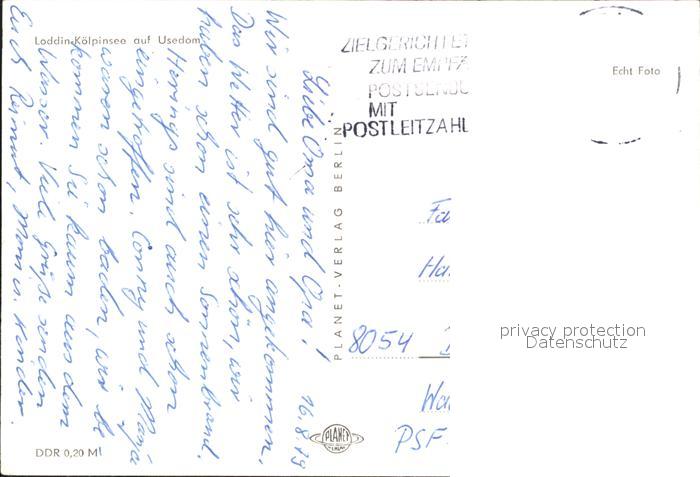 Loddin-Kölpinsee auf Usedom
Echt Foto
ZIELGERICHTET
ZUM EMPFÄ
POSTSENDU
MIT
POSTLEITZAHL
16.8.79
Liebe Oma und Opa!
Wir sind gut hier angekommen.
Das Wetter ist sehr schön, wir
haben schon einen Sonnenbrand.
Herings sind auch schon
eingetroffen. Conny und Manja
waren schon baden, wir be
kommen sie kaum aus dem
Wasser. Viele Grüße senden
Euch Reimut, Moni u. Kinder.
PLANET-VERLAG BERLIN
Fa
Ha
8054
Wa
PSF
PLANET
VERLAG
DDR 0,20 M
privacy protection
Datenschutz